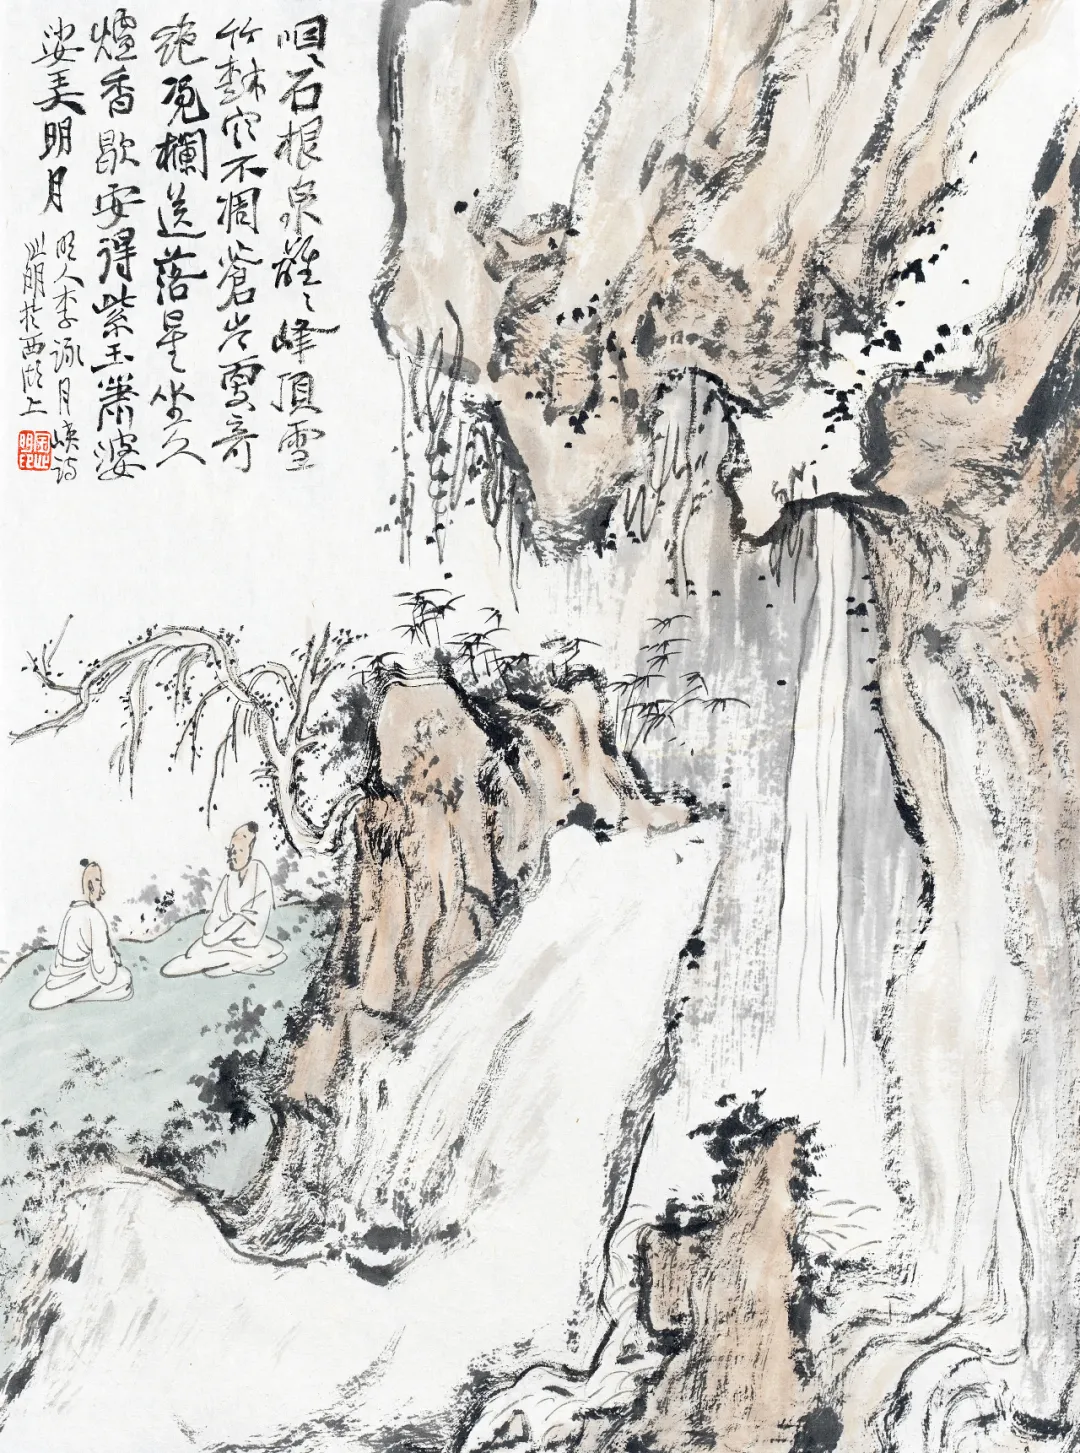 咽〻石根泉離〻峰頂雪
竹不凋蒼岩雲奇
絕凴欄送落星坐久
爐香歇安得紫玉簫婆
娑美明月
明人李詠月峽詩
明於西湖上